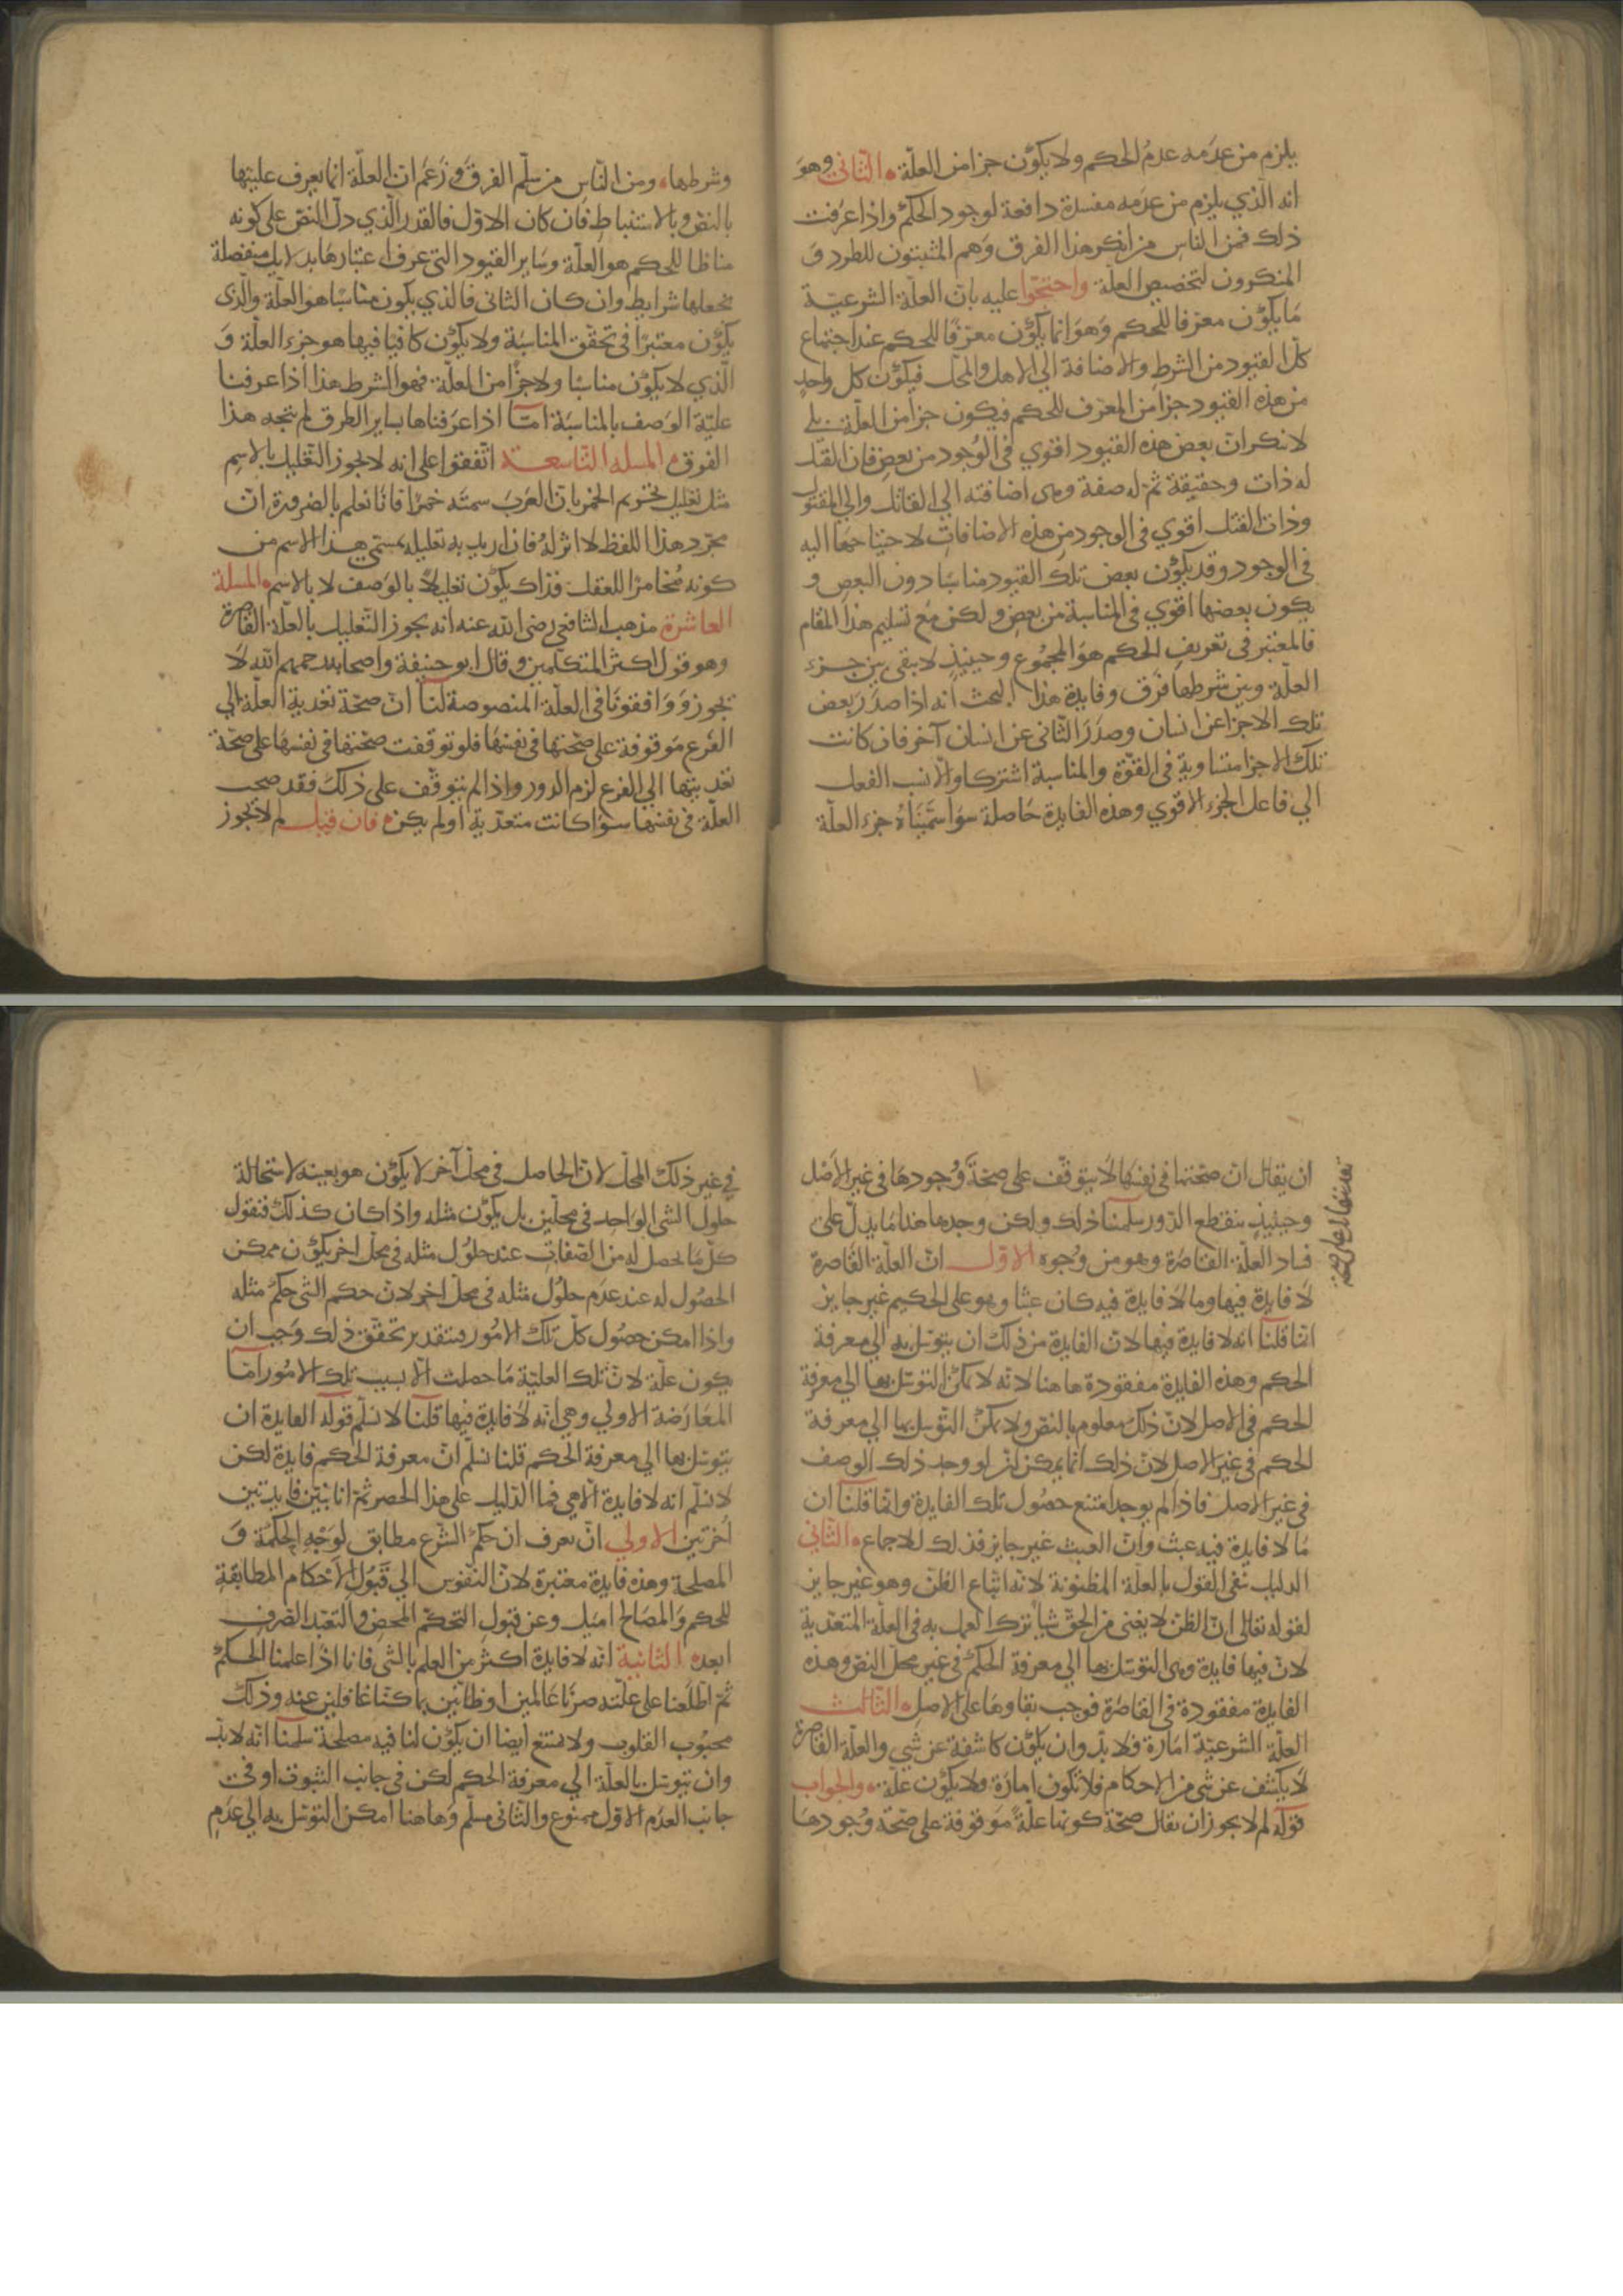 يلزم من عدمه عدم الحكم ولا يكون جزا من العلة الثاني وهو
انه الذي يلزم من عدمه مفسدة دافعة لوجود الحكم واذا عرفت
ذلك فمن الناس من انكر هذا الفرق وهم المثبتون للطرد و
المنكرون لتخصيص العلة واحتجوا عليه بان العلة الشرعية
ما يكون معرفا للحكم وهو انما يكون معرفا للحكم عند اجتماع
كل القيود من الشرط والاضافة الي الاهل والمحل فيكون كل واحد
من هذه القيود جزا من المعرف للحكم فيكون جزا من العلة بلي
لا ننكر ان بعض هذه القيود اقوي في الوجود من بعض فان القتل
له ذات وحقيقة ثم له صفة وهي اضافته الي القاتل والي المقتول
وذات القتل اقوي في الوجود من هذه الاضافات لاحتياجها اليه
في الوجود وقد يكون بعض تلك القيود مناسبا دون البعض و
يكون بعضها اقوي في المناسبة من بعض ولكن مع تسليم هذا المقام
فالمعتبر في تعريف الحكم هو المجموع وحينيذ لا يبقي بين جزء
العلة وبين شرطها فرق وفايدة هذا البحث انه اذا صدر بعض
تلك الاجزا عن انسان وصدر الثاني عن انسان آخر فان كانت
تلك الاجزا متساوية في القوة والمناسبة اشتركا والا نسب الفعل
الي فاعل الجزء الاقوي وهذه الفايدة حاصلة سوا سميناه جزء العلة
وشرطها ومن الناس من سلم الفرق وزعم ان العلة انما يعرف عليتها
بالنص وبالاستنباط فان كان الاول فالقدر الذي دل النص علي كونه
مناطا للحكم هو العلة وساير القيود التي عرف اعتبارها بدلايل منفصلة
نجعلها شرايط وان كان الثاني فالذي يكون مناسبا هو العلة والذي
يكون معتبرا في تحقق المناسبة ولا يكون كافيا فيها هو جزء العلة و
الذي لا يكون مناسبا ولا جزا من العلة فهو الشرط هذا اذا عرفنا
علية الوصف بالمناسبة اما اذا عرفناها بساير الطرق لم يتجه هذا
الفرق المسله التاسعة اتفقوا علي انه لا يجوز التعليل بالاسم
مثل تعليل تحريم الخمر بان العرب سمته خمرا فانا نعلم بالضرورة ان
مجرد هذا اللفظ لا اثر له فان اريد به تعليله بمسمي هذا الاسم من
كونه مخامرا للعقل فذاك يكون تعليلا بالوصف لا بالاسم المسلة
العاشرة مذهب الشافعي رضي الله عنه انه يجوز التعليل بالعلة القاصرة
وهو قول اكثر المتكلمين وقال ابو حنيفة واصحابه رحمهم الله لا
يجوز ووافقونا في العلة المنصوصة لنا ان صحة تعدية العلة الي
الفرع موقوفة علي صحتها في نفسها فلو توقفت صحتها في نفسها علي صحة
تعديتها الي الفرع لزم الدور واذا لم يتوقف علي ذلك فقد صحت
العلة في نفسها سوا كانت متعدية او لم يكن فان قيل لم لا يجوز
ان يقال ان صحتها في نفسها لا يتوقف علي صحة وجودها في غير الاصل
وحينيذ ينقطع الدور سلمنا ذلك ولكن وجد ها هنا ما يدل علي
فساد العلة القاصرة وهو من وجوه الاول ان العلة القاصرة
لا فايدة فيها وما لا فايدة فيه كان عبثا وهو علي الحكيم غير جايز
انما قلنا انه لا فايدة فيها لان الفايدة من ذلك ان يتوسل به الي معرفة
الحكم وهذه الفايدة مفقودة ها هنا لانه لا يمكن التوسل بها الي معرفة
الحكم في الاصل لان ذلك معلوم بالنص ولا يمكن التوسل بها الي معرفة
الحكم في غير الاصل لان ذلك انما يمكن ان لو وجد ذلك الوصف
في غير الاصل فاذا لم يوجد امتنع حصول تلك الفايدة وانما قلنا ان
ما لا فايدة فيه عبث وان العبث غير جايز فذلك للاجماع الثاني
الدليل نفي القول بالعلة المظنونة لانه اتباع الظن وهو غير جايز
لقوله تعالي ان الظن لا يغني من الحق شيا ترك العمل به في العلة المتعدية
لان فيها فايدة وهي التوسل بها الي معرفة الحكم في غير محل النص وهذه
الفايدة مفقودة في القاصرة فوجب بقاوها علي الاصل الثالث
العلة الشرعية امارة فلا بد وان يكون كاشفة عن شي والعلة القاصرة
لا يكشف عن شي من الاحكام فلا تكون امارة ولا يكون علة والجواب
قوله لم لا يجوز ان يقال صحة كونها علة موقوفة علي صحة وجودها
في غير ذلك المحل لان الحاصل في محل آخر لا يكون هو بعينه لاستحالة
حلول الشي الواحد في محلين بل يكون مثله واذا كان كذلك فنقول
كل ما يحصل له من الصفات عند حلول مثله في محل اخر يكون ممكن
الحصول له عند عدم حلول مثله في محل اخر لان حكم الشي حكم مثله
واذا امكن حصول كل تلك الامور فبتقدير تحقق ذلك وجب ان
يكون علة لان تلك العلية ما حصلت الا بسبب تلك الامور اما
المعارضة الاولي وهي انه لا فايدة فيها قلنا لا نسلم قوله الفايدة ان
يتوسل بها الي معرفة الحكم قلنا نسلم ان معرفة الحكم فايدة لكن
لا نسلم انه لا فايدة الا هي فما الدليل علي هذا الحصر ثم انا نبين فايدتين
اخرتين الاولي ان نعرف ان حكم الشرع مطابق لوجه الحكمة و
المصلحة وهذه فايدة معتبرة لان النفوس الي قبول الاحكام المطابقة
للحكم والمصالح اميل وعن قبول التحكم المحض والتعبد الصرف
ابعد الثانية انه لا فايدة اكثر من العلم بالشي فانا اذا علمنا الحكم
ثم اطلعنا علي علته صرنا عالمين او ظانين بما كنا غافلين عنه وذلك
محبوب القلوب ولا يمتنع ايضا ان يكون لنا فيه مصلحة سلمنا انه لا بد
وان يتوسل بالعلة الي معرفة الحكم لكن في جانب الثبوت او في
جانب العدم الاول ممنوع والثاني مسلم وها هنا امكن التوسل به الي عدم